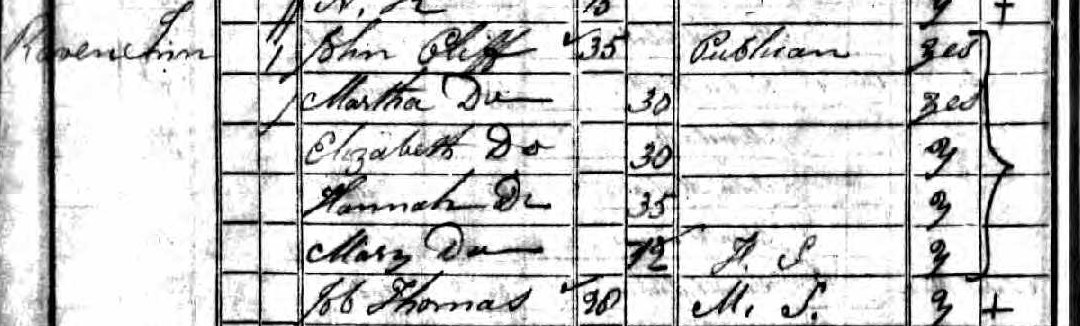 John Cliff 35 Publican yes
Martha Do 30 yes
Elizabeth Do 30 y
Hannah Do 35 y
Mary Do 12 F. S. y
Job Thomas M. S. y +